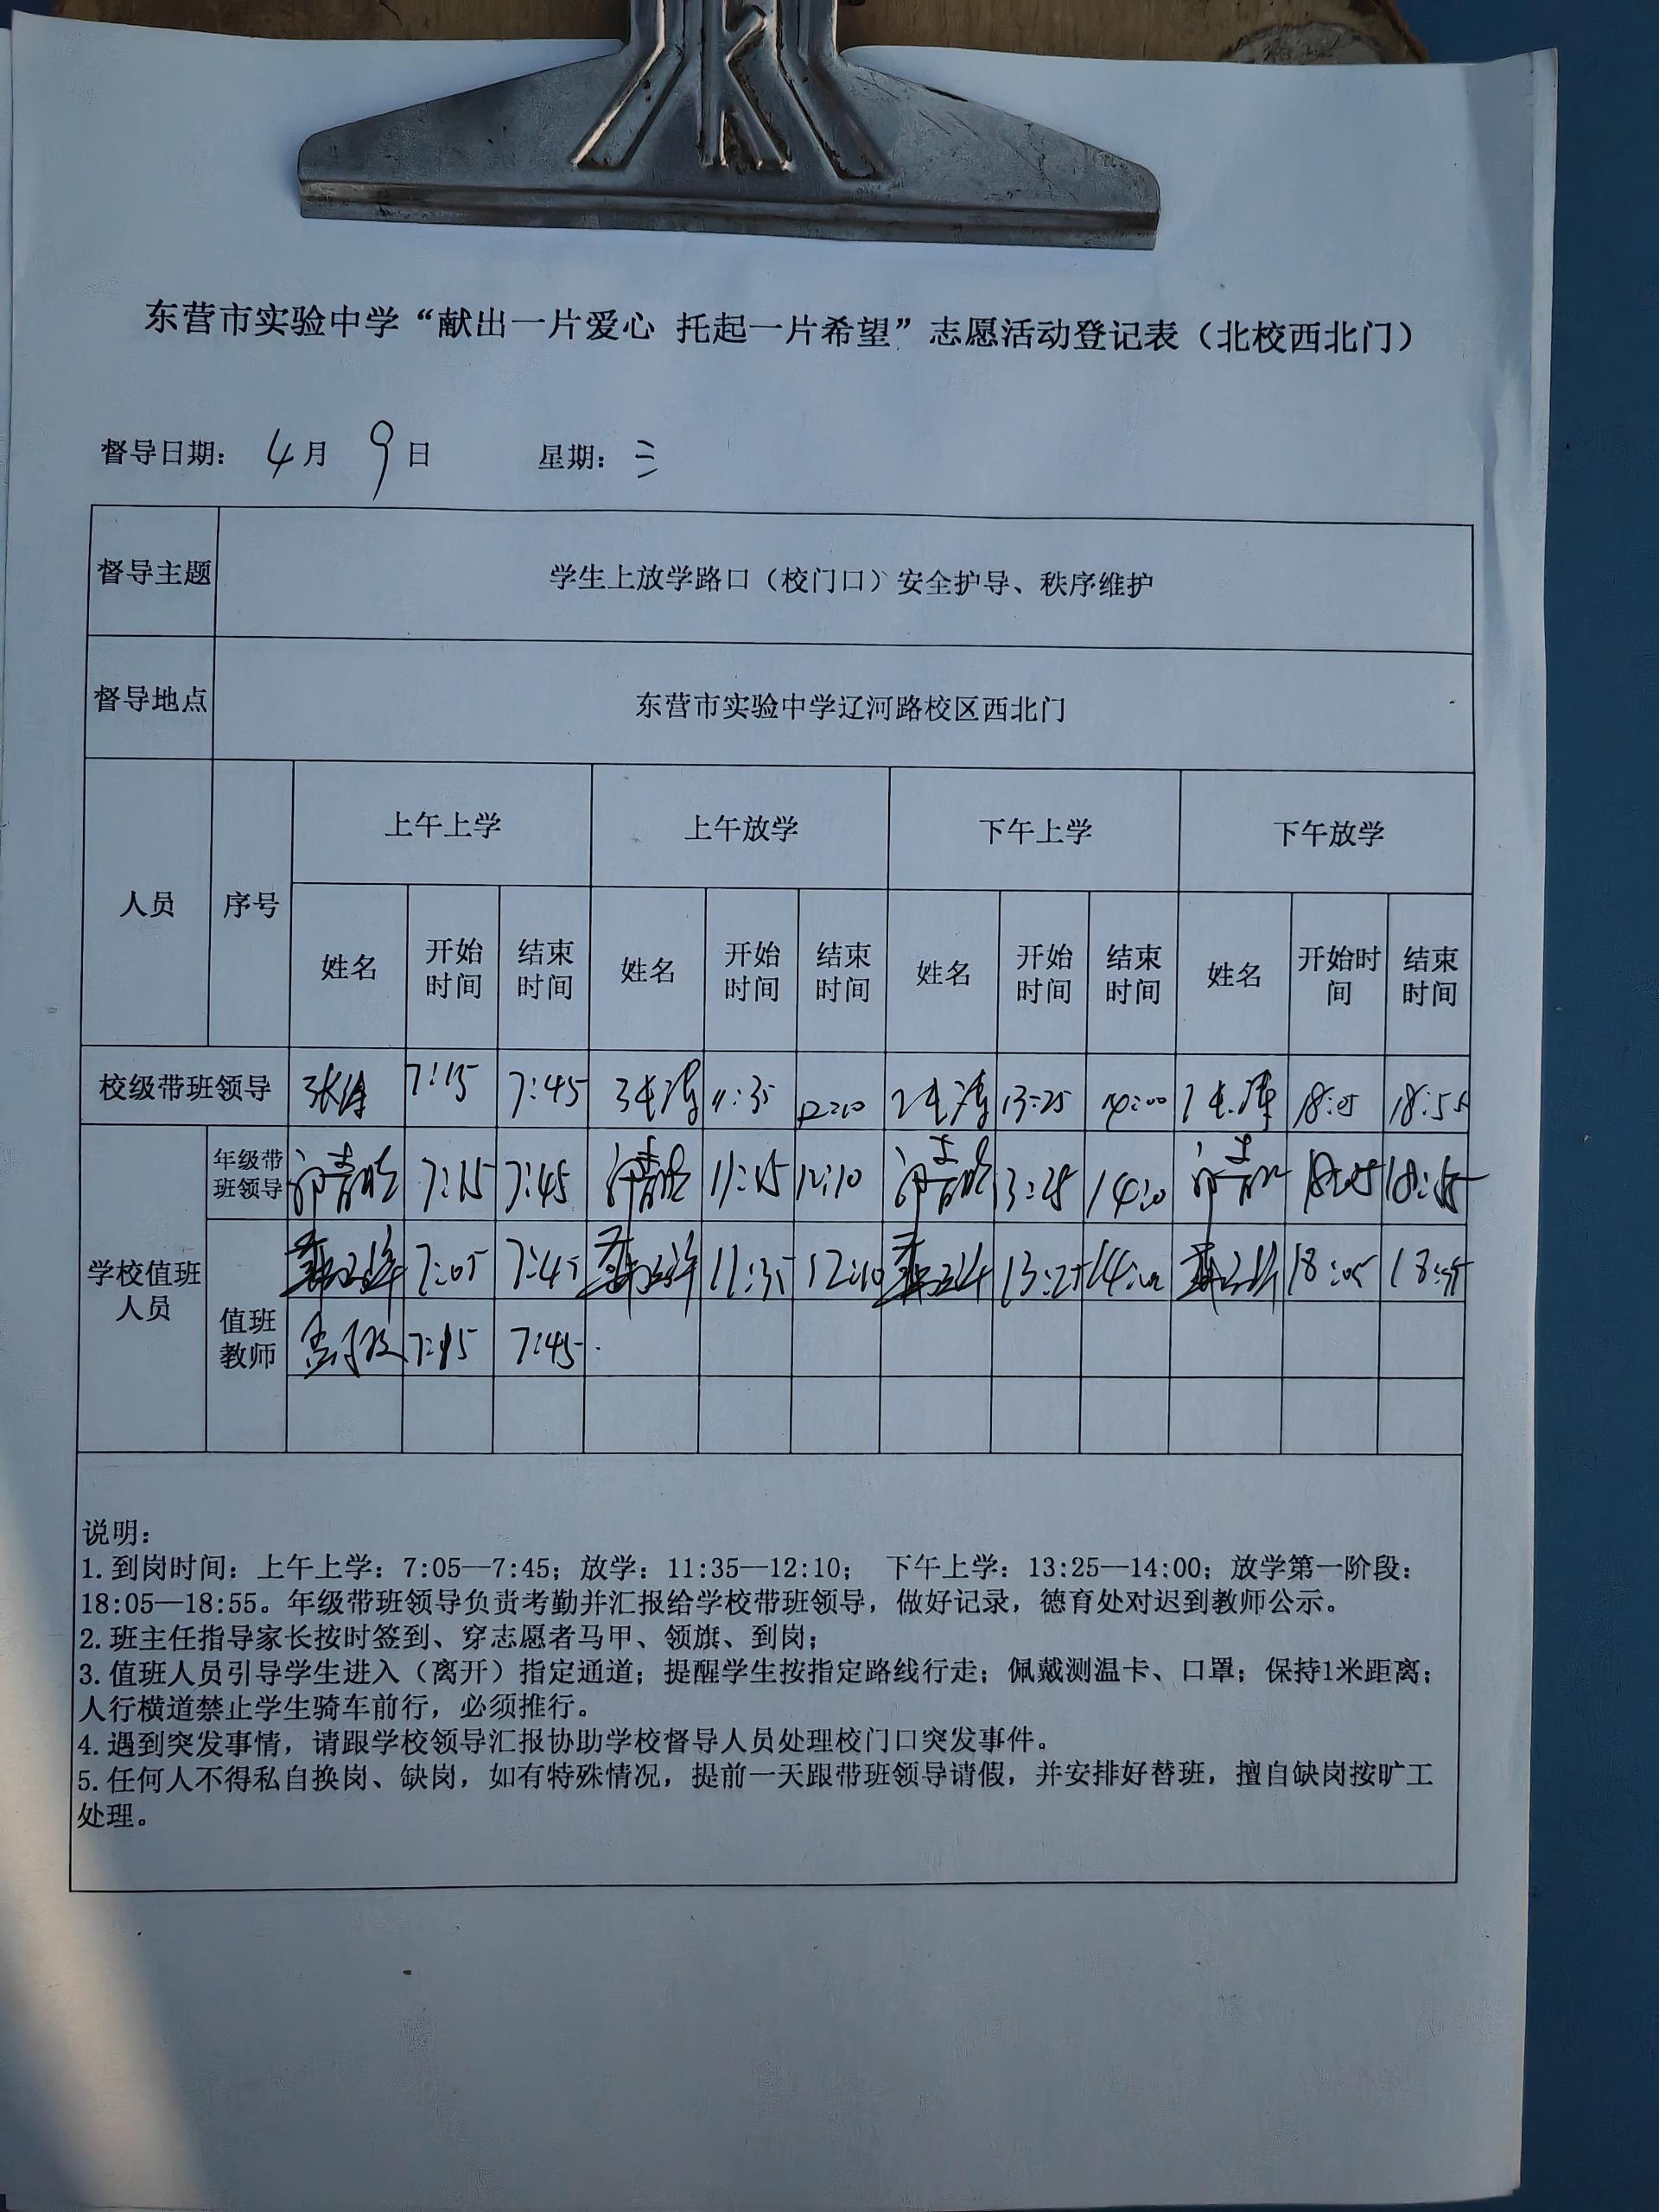 东营市实验中学“献出一片爱心 托起一片希望”志愿活动登记表（北校西北门）
督导日期： 4月 9日 星期：三
督导主题 学生上放学路口（校门口）安全护导、秩序维护
督导地点 东营市实验中学辽河路校区西北门
人员 序号 上午上学 上午放学 下午上学 下午放学
姓名 开始时间 结束时间 姓名 开始时间 结束时间 姓名 开始时间 结束时间 姓名 开始时间 结束时间
校级带班领导 张涛 7:15 7:45 张涛 11:35 12:10 张涛 13:25 14:00 张涛 18:05 18:55
学校值班人员
年级带班领导 7:15 7:45 12:10 13:25 18:05 18:55
值班教师 7:05 7:45 11:35 12:10 13:25 14:00 18:05 18:55
7:15 7:45
说明：
1.到岗时间：上午上学：7:05—7:45；放学：11:35—12:10； 下午上学：13:25—14:00；放学第一阶段：
18:05—18:55。年级带班领导负责考勤并汇报给学校带班领导，做好记录，德育处对迟到教师公示。
2.班主任指导家长按时签到、穿志愿者马甲、领旗、到岗；
3.值班人员引导学生进入（离开）指定通道；提醒学生按指定路线行走；佩戴测温卡、口罩；保持1米距离；
人行横道禁止学生骑车前行，必须推行。
4.遇到突发事情，请跟学校领导汇报协助学校督导人员处理校门口突发事件。
5.任何人不得私自换岗、缺岗，如有特殊情况，提前一天跟带班领导请假，并安排好替班，擅自缺岗按旷工
处理。